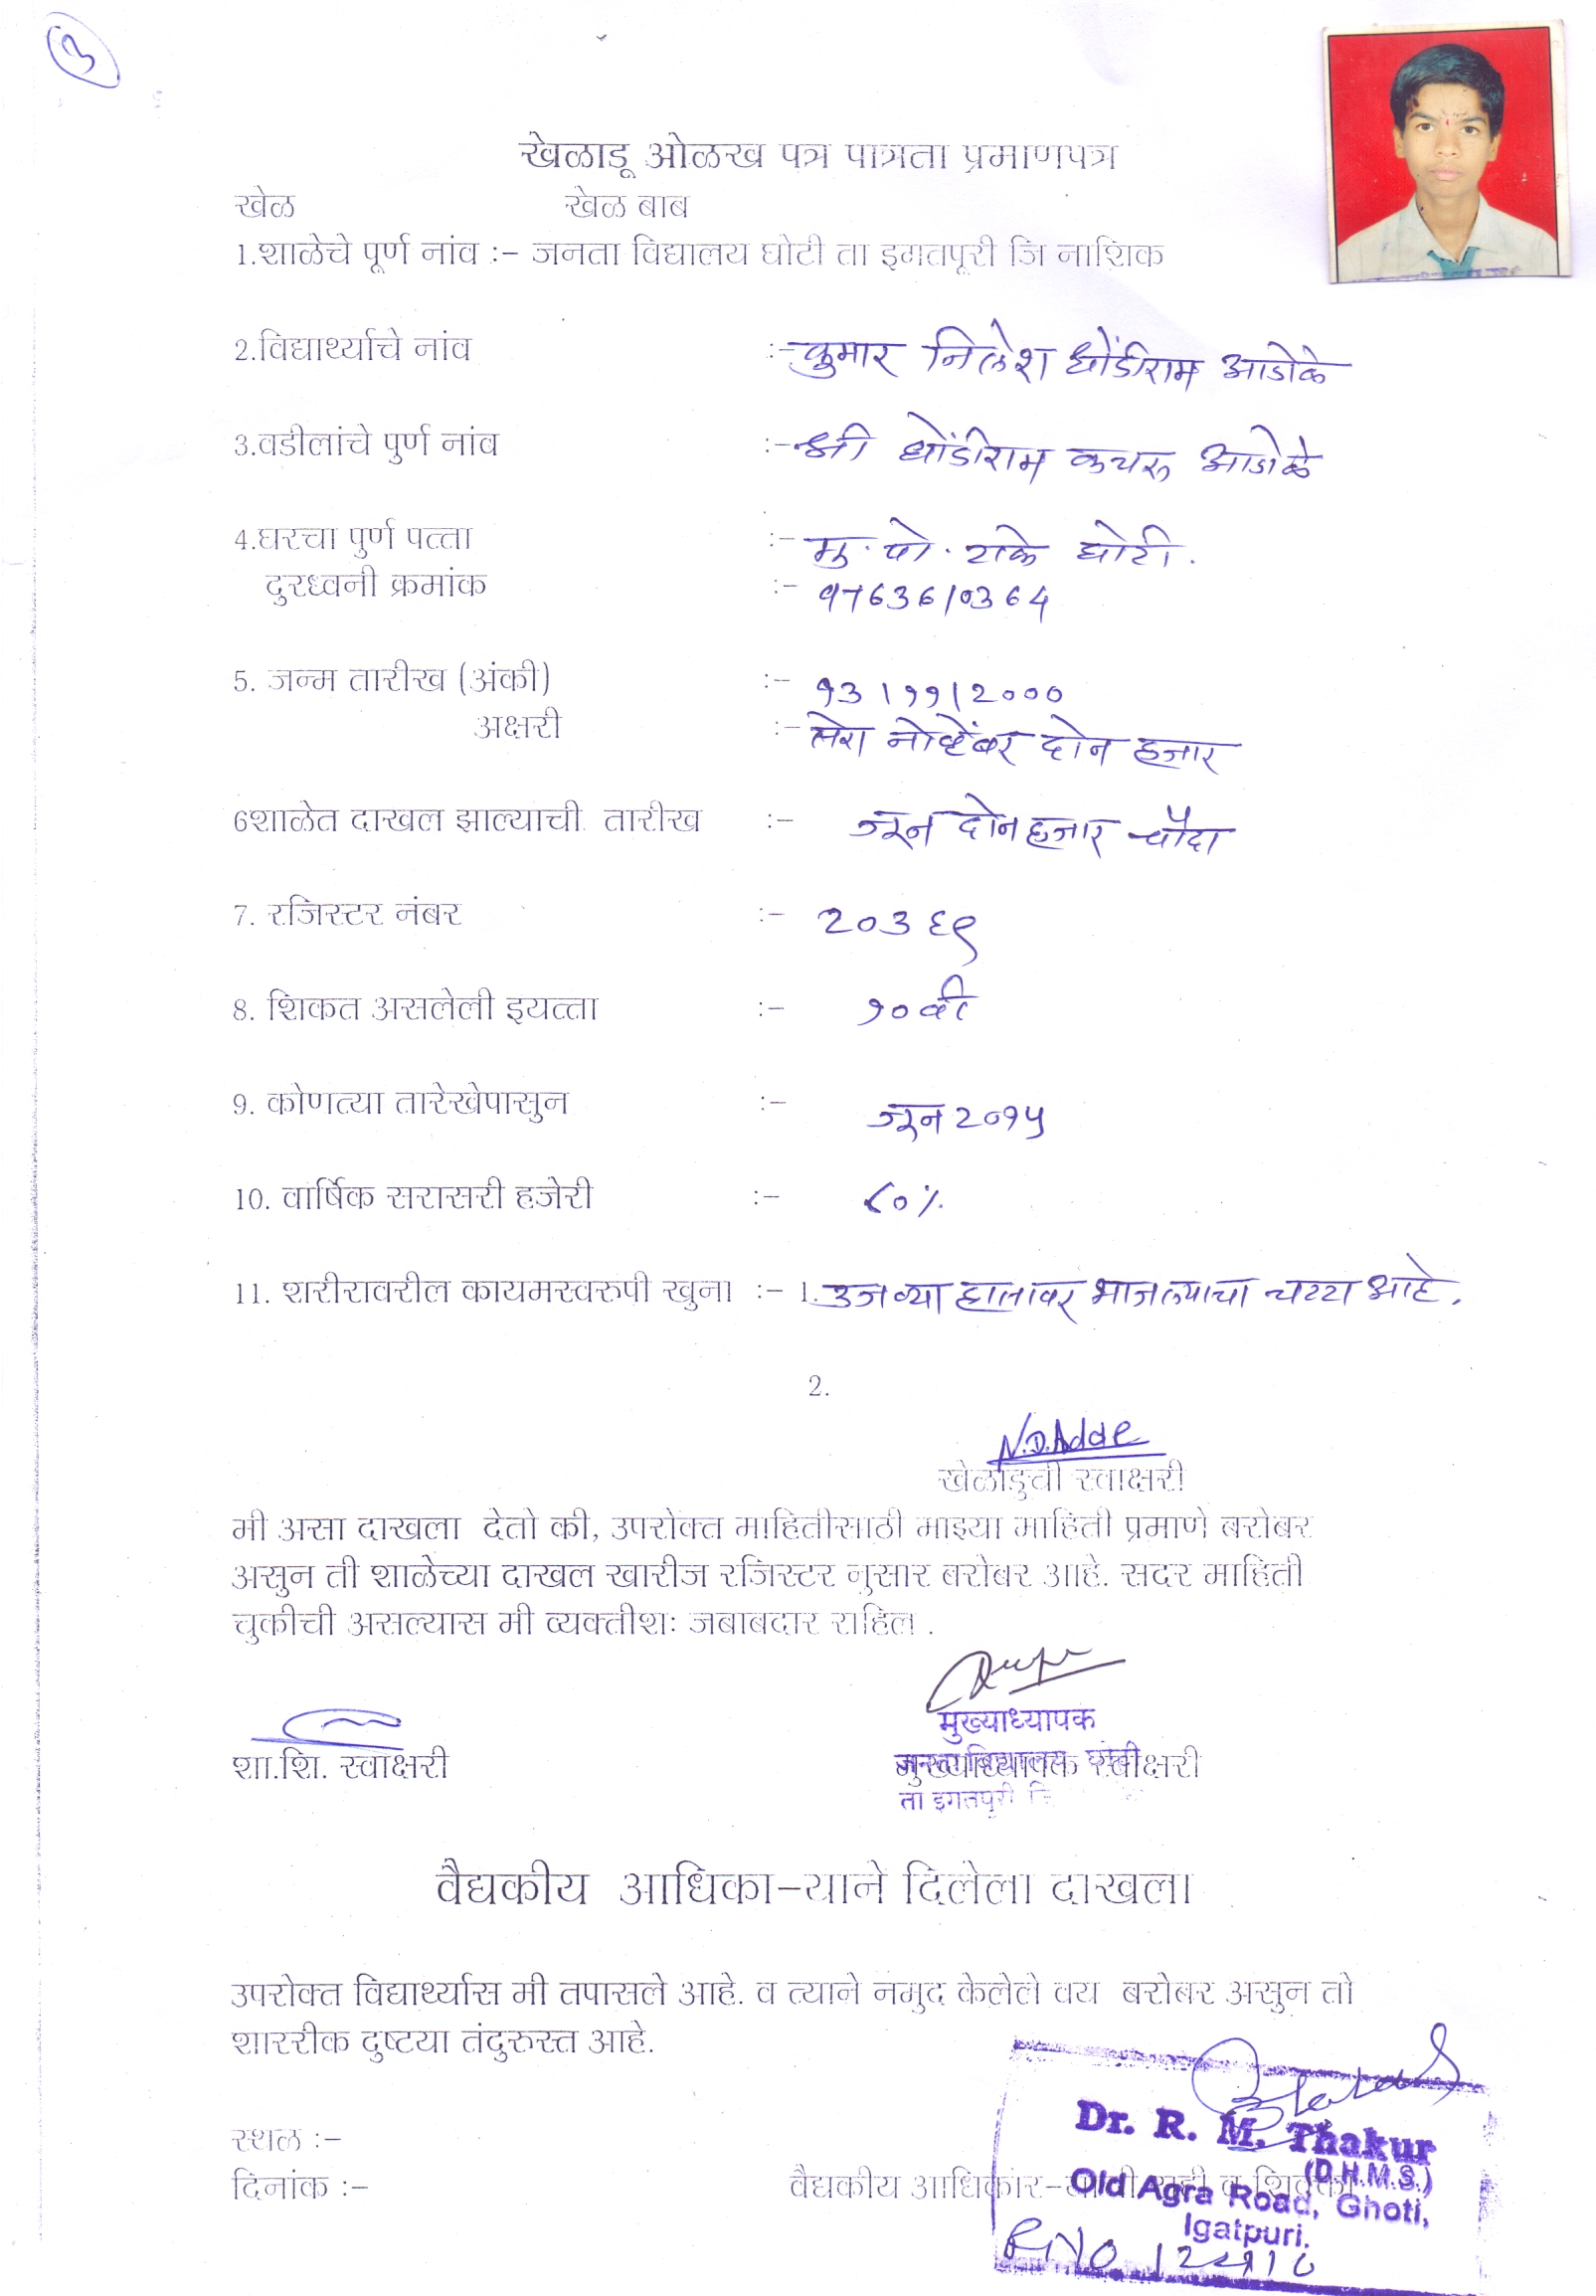 ३
खेळाडू ओळख पत्र पात्रता प्रमाणपत्र
खेळ खेळ बाब
1.शाळेचे पूर्ण नांव :- जनता विद्यालय घोटी ता इगतपूरी जि नाशिक
2.विद्यार्थ्याचे नांव :- कुमार निलेश धोंडीराम आडोळे
3.वडीलांचे पुर्ण नांव :- श्री धोंडीराम कचरू आडोळे
4.घरचा पुर्ण पत्ता :- मु. पो. टाके घोटी.
दुरध्वनी क्रमांक :- 9763610364
5. जन्म तारीख (अंकी) :- १३।११।२०००
अक्षरी :- तेरा नोव्हेंबर दोन हजार
6शाळेत दाखल झाल्याची तारीख :- जून दोन हजार चौदा
7. रजिस्टर नंबर :- २०३६९
8. शिकत असलेली इयत्ता :- १०वी
9. कोणत्या तारेखेपासुन :- जून २०१५
10. वार्षिक सरासरी हजेरी :- ८०%
11. शरीरावरील कायमस्वरुपी खुना :- 1. उजव्या हातावर भाजल्याचा चट्टा आहे.
2.
N.D.Adole
खेळाडुची स्वाक्षरी
मी असा दाखला देतो की, उपरोक्त माहितीसाठी माझ्या माहिती प्रमाणे बरोबर
असुन ती शाळेच्या दाखल खारीज रजिस्टर नुसार बरोबर आहे. सदर माहिती
चुकीची असल्यास मी व्यक्तीशः जबाबदार राहिल .
मुख्याध्यापक
शा.शि. स्वाक्षरी मुख्याध्यापक स्वाक्षरी
जनता विद्यालय घोटी
ता इगतपुरी जि
वैद्यकीय आधिका-याने दिलेला दाखला
उपरोक्त विद्यार्थ्यास मी तपासले आहे. व त्याने नमुद केलेले वय बरोबर असुन तो
शाररीक दुष्टया तंदुरुस्त आहे.
स्थल :-
दिनांक :- वैद्यकीय आधिकार-याची सही व शिक्का
Dr. R. M. Thakur
(D.H.M.S.)
Old Agra Road, Ghoti,
Igatpuri.